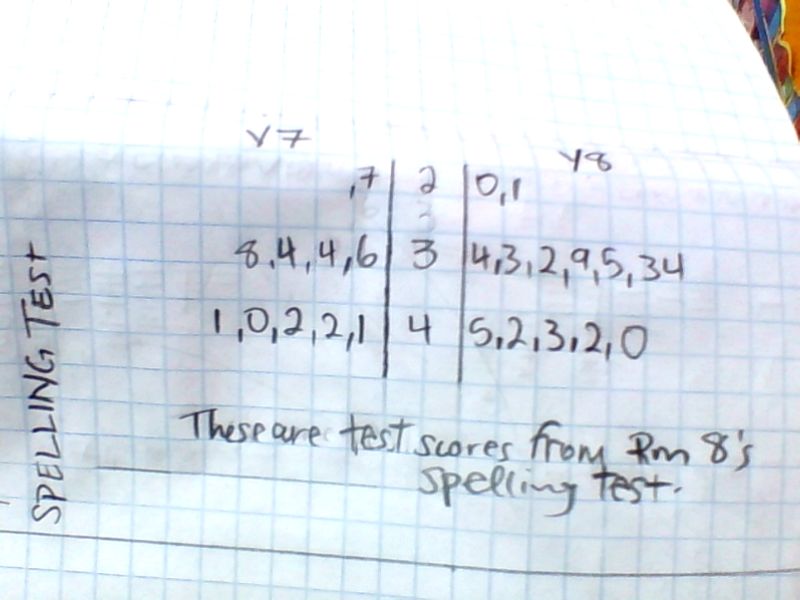 Y7 Y8
,7 | 2 | 0,1
8,4,4,6 | 3 | 4,3,2,9,5,34
1,0,2,2,1 | 4 | 5,2,3,2,0
These are test scores from Rm 8's
spelling test.
SPELLING TEST